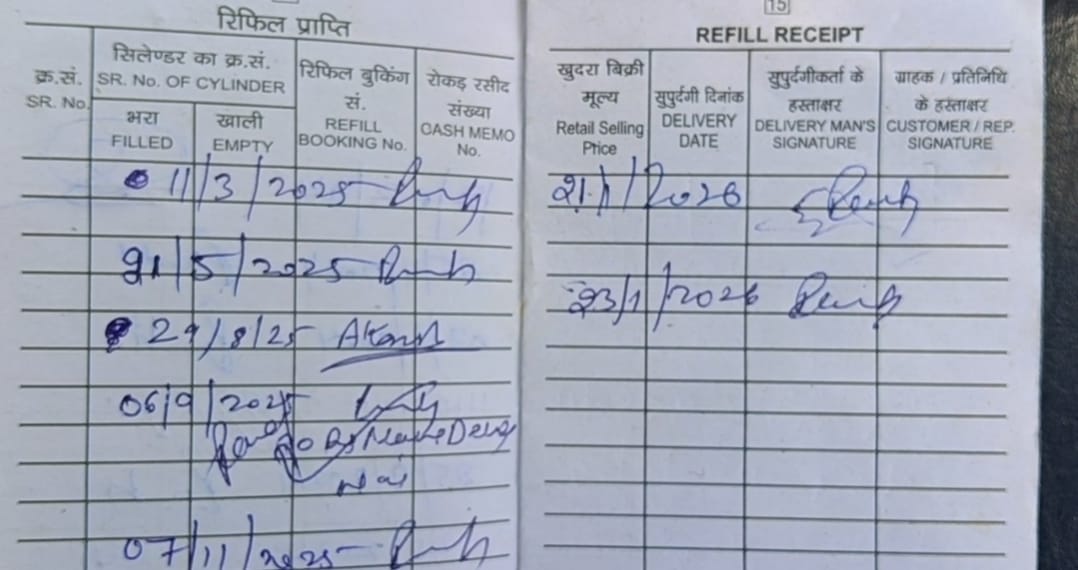 रिफिल प्राप्ति
क्र.सं.
SR. No.
सिलेण्डर का क्र.सं.
SR. No. OF CYLINDER
भरा
FILLED
खाली
EMPTY
रिफिल बुकिंग
सं.
REFILL
BOOKING No.
रोकड़ रसीद
संख्या
CASH MEMO
No.
11/3/2025
21/5/2025
29/8/25
06/9/2025
07/11/2025
15
REFILL RECEIPT
खुदरा बिक्री
मूल्य
Retail Selling
Price
सुपुर्दगी दिनांक
DELIVERY
DATE
सुपुर्दगीकर्ता के
हस्ताक्षर
DELIVERY MAN'S
SIGNATURE
ग्राहक / प्रतिनिधि
के हस्ताक्षर
CUSTOMER / REP.
SIGNATURE
21/1/2026
23/1/2026